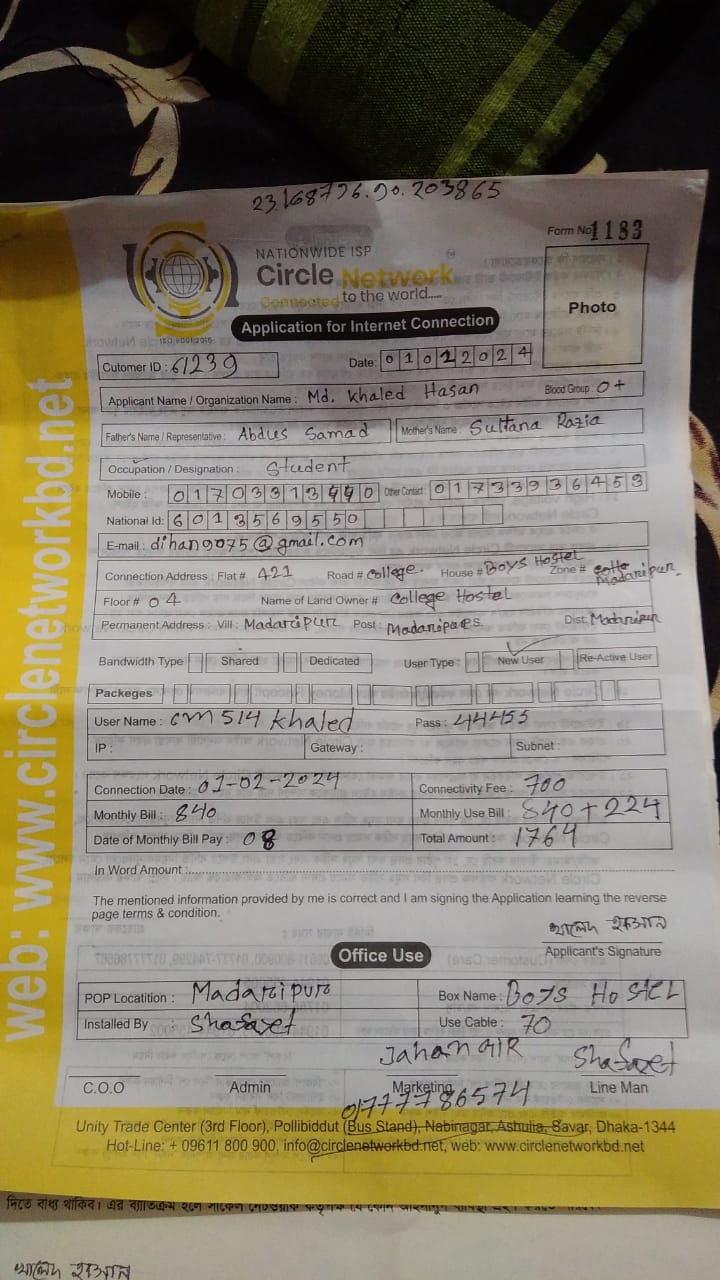 23.168796.90.203865
Form No 1183
NATIONWIDE ISP
Circle Network
Connected to the world.....
ISO 9001:2015
Photo
Application for Internet Connection
Cutomer ID : 61239 Date: 01022024
Applicant Name / Organization Name : Md. Khaled Hasan Blood Group : O+
Father's Name / Representative : Abdus Samad Mother's Name : Sultana Razia
Occupation / Designation : Student
Mobile : 01703313440 Other Contact 01733936459
National Id: 6013569550
E-mail : dihan9075@gmail.com
Connection Address : Flat # 421 Road # College. House # Boys Hostel Zone # Madaripur
Floor # 04 Name of Land Owner # College Hostel
Permanent Address : Vill : Madaripur Post : Dist: Madaripur
Bandwidth Type Shared Dedicated User Type : New User Re-Active User
Packeges
User Name : cm514 khaled Pass : 44455
IP : Gateway : Subnet :
Connection Date : 01-02-2024 Connectivity Fee : 700
Monthly Bill : 840 Monthly Use Bill : 840+224
Date of Monthly Bill Pay : 08 Total Amount : 1764
In Word Amount :
The mentioned information provided by me is correct and I am signing the Application learning the reverse
page terms & condition.
খালেদ হাসান
Applicant's Signature
Office Use
POP Locatition : Madaripur Box Name : Boys HoSteL
Installed By : Shafayet Use Cable : 70
Jahan Shafayet
C.O.O Admin Marketing Line Man
01777786574
Unity Trade Center (3rd Floor), Pollibiddut (Bus Stand), Nabinagar, Ashulia, Savar, Dhaka-1344
Hot-Line: + 09611 800 900, info@circlenetworkbd.net, web: www.circlenetworkbd.net
web: www.circlenetworkbd.net
খালেদ হাসান